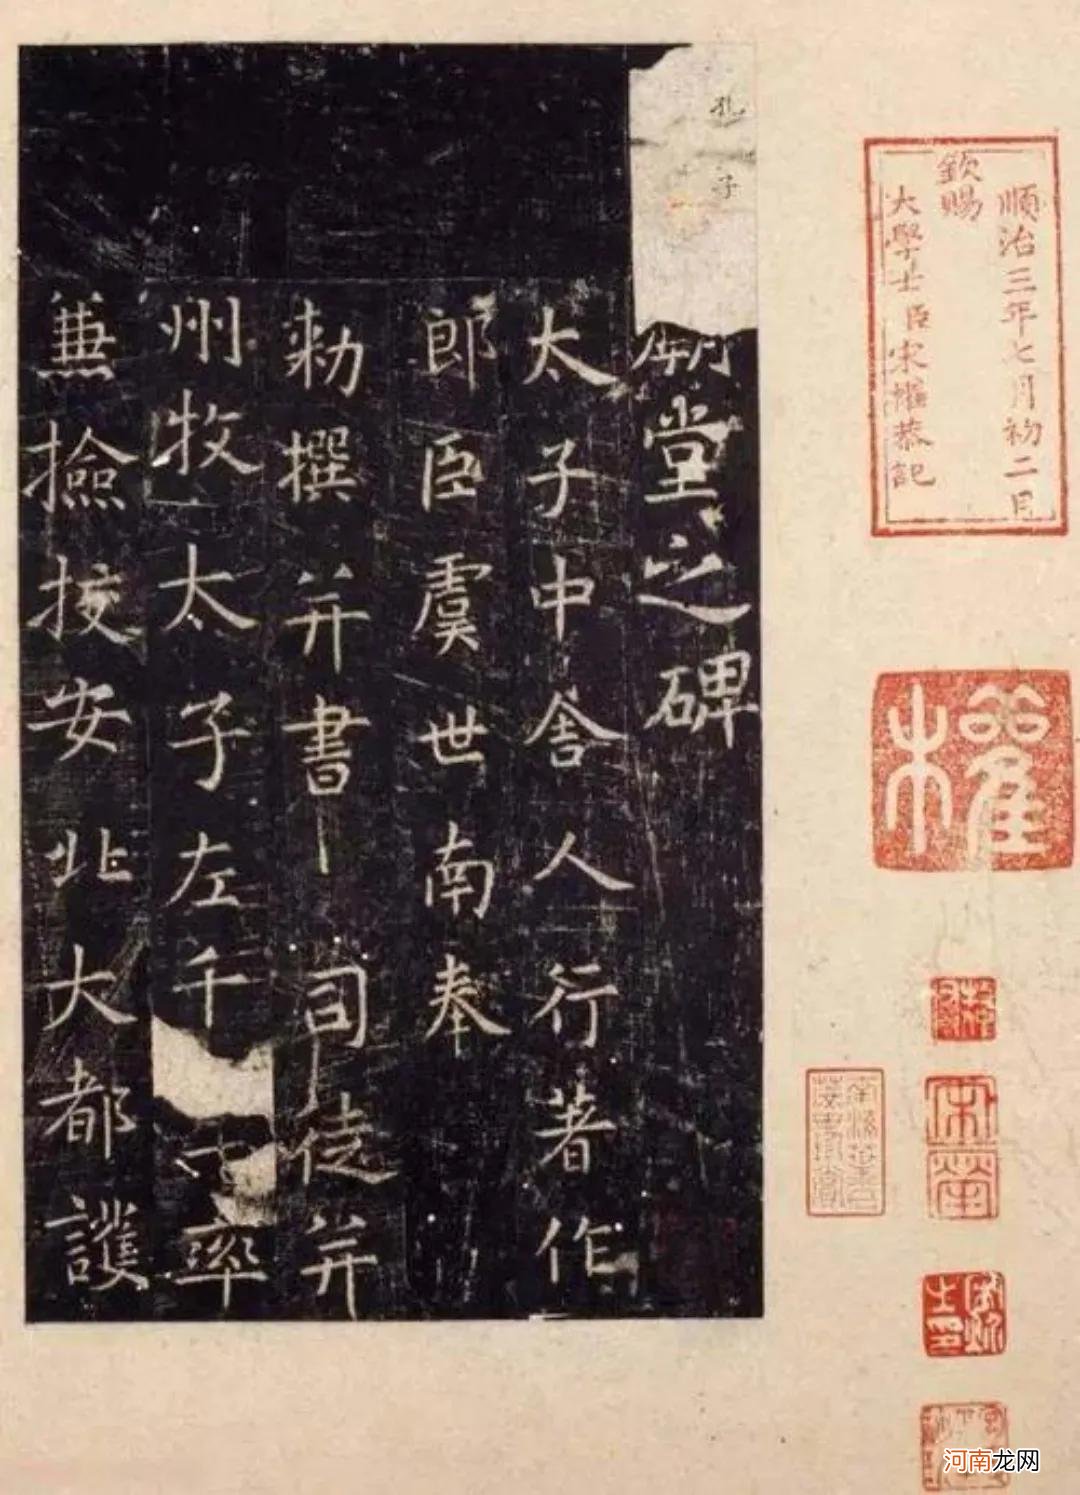 順治三年七月初二日
欽賜
大學士臣宋權恭記
權
宋犖
孔子
廟堂之碑
太子中舍人行著作
郎臣虞世南奉
勑撰并書 司徒并
州牧太子左千牛率
兼撿挍安北大都護
河南龙网